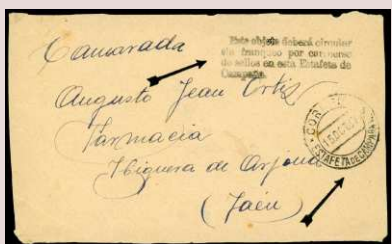 Camarada
Este objeto deberá circular
sin franqueo por carencia
de sellos en esta Estafeta de
Campaña.
Augusto Jean Ortiz
Farmacia
Higuera de Arjona
(Jaén)
ESTAFETA DE CAMPAÑA